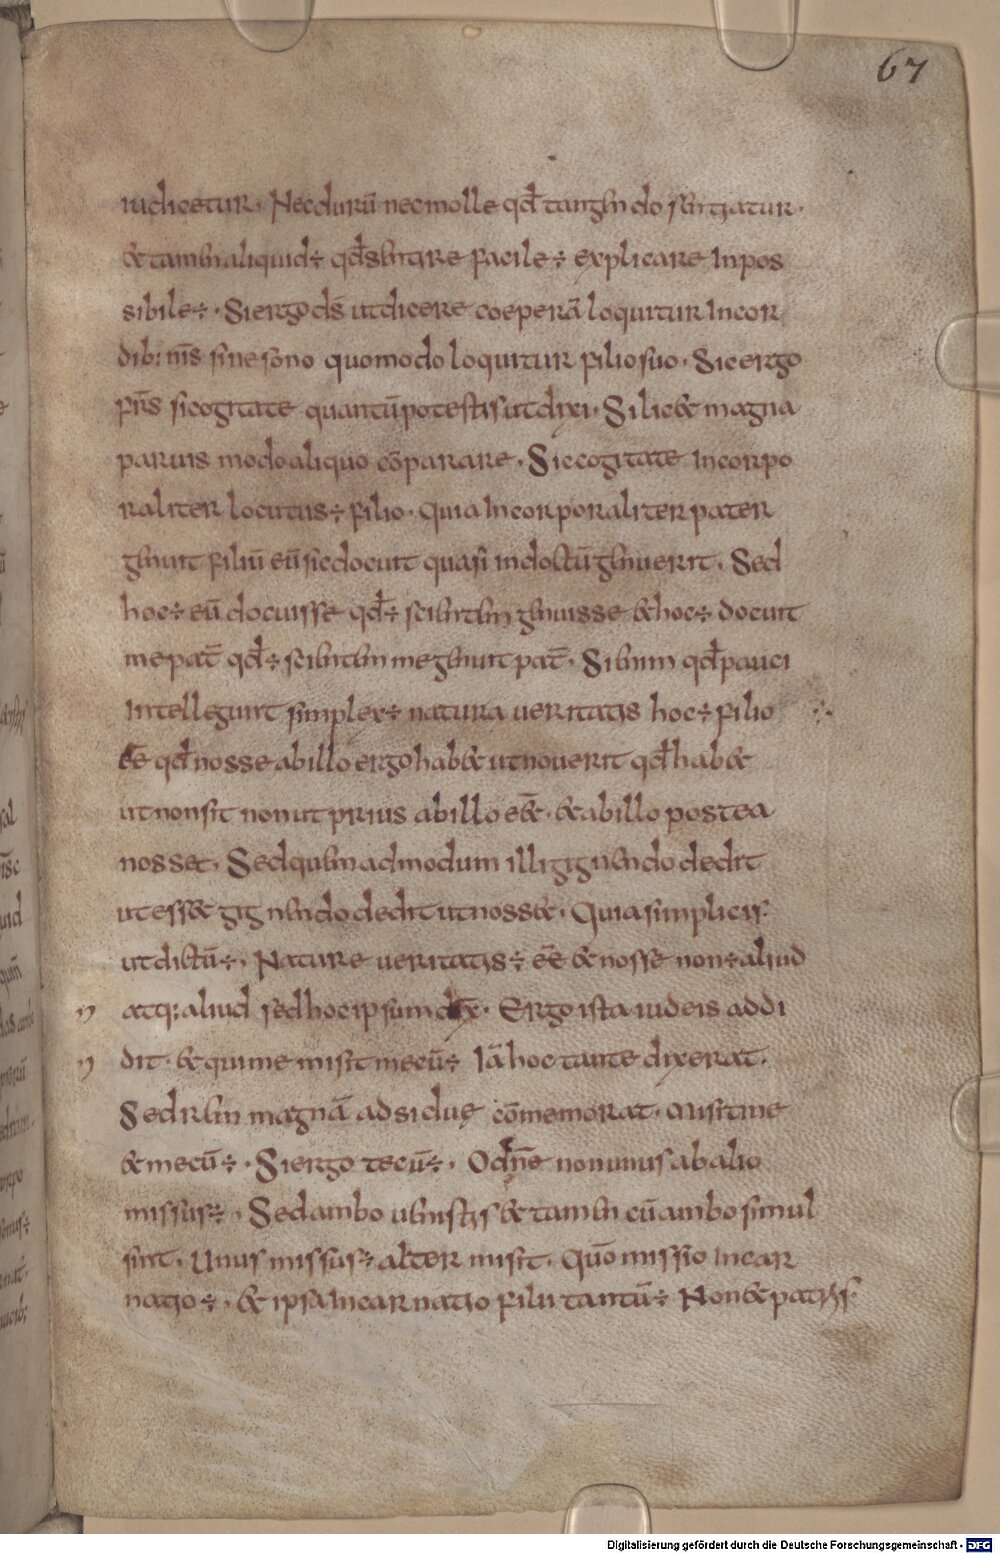 67
iudicetur· Nec durū nec molle qđ tangendo sentiatur·
& tamen aliquid÷ qđ sentire facile÷ explicare Inpos
sibile÷· Si ergo ds̄ ut dicere coeperā loquitur Incor
dib: nr̄is sine sono quomodo loquitur filio suo· Sic ergo
fr̄s sic ogitate quantū potestis ut dixi· Si lic& magna
paruis modo aliquo cōparare· Sic cogitate Incorpo
raliter locutus÷ filio· Quia Incorporaliter pater
genuit filiū eū sic docuit quasi indoctū genuerit· Sed
hoc÷ eū docuisse qđ÷ scientem genuisse & hoc÷ docuit
me pat̄ qđ÷ scientem me genuit pat̄· Si enim qđ pauci
Intellegunt simplex÷ natura ueritatis hoc÷ filio
ēē qđ nosse ab illo ergo hab& ut nouerit qđ hab&
ut non sit non ut prius ab illo eē&· & ab illo postea
nosset· Sed quem admodum illi gignendo dedit
ut ess& gignendo dedit ut noss&· Quia simplicis
ut dictū÷· Nature ueritatis÷ ēē & nosse non÷ aliud
atq: aliud sed hoc ipsum
Ergo ista iudeis addi
dit· & qui me misit mecū÷ Iā hoc tante dixerat·
Sed rem magnā adsidue cōmemorat· misit me
& mecū÷· Si ergo tecū÷· O dn̄e non unus ab alio
missus÷· Sed ambo uenistis & tamen cū ambo simul
sint· Unus missus÷ alter misit· Quō missio Incar
natio÷· & ipsa Incarnatio filii tantū÷ Non & patris·
Digitalisierung gefördert durch die Deutsche Forschungsgemeinschaft - DFG